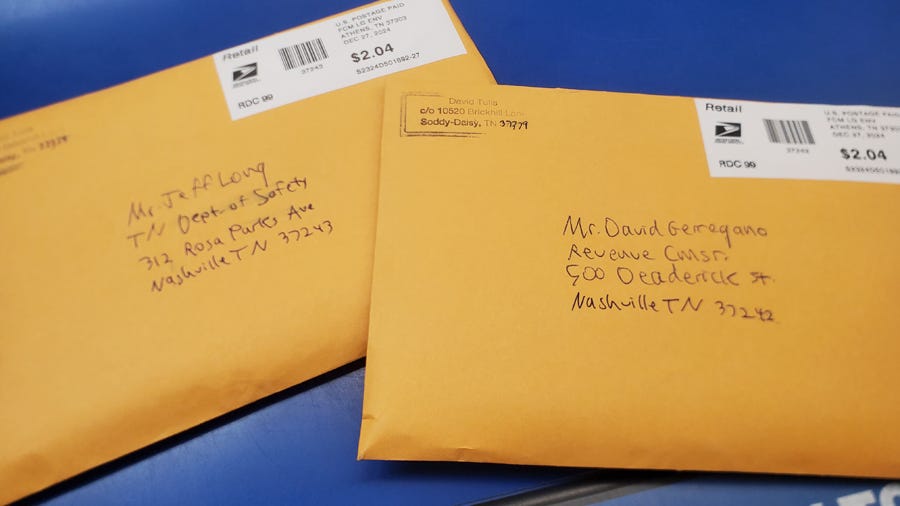 Retail
U.S. POSTAGE PAID
FCM LG ENV
ATHENS, TN 37303
DEC 27, 2024
37243
$2.04
RDC 99
S2324D501892-27
37379
Mr. Jeff Long
TN Dept. of Safety
312 Rosa Parks Ave
Nashville TN 37243
Retail
U.S. POSTAGE PAID
FCM LG ENV
ATHENS, TN 3730
DEC 27, 2024
37242
$2.04
RDC 99
S2324D501892
David Tulis
c/o 10520 Brickhill Lane
Soddy-Daisy, TN 37379
Mr. David Gerregano
Revenue Cmsr.
500 Deaderick St.
Nashville TN 37242